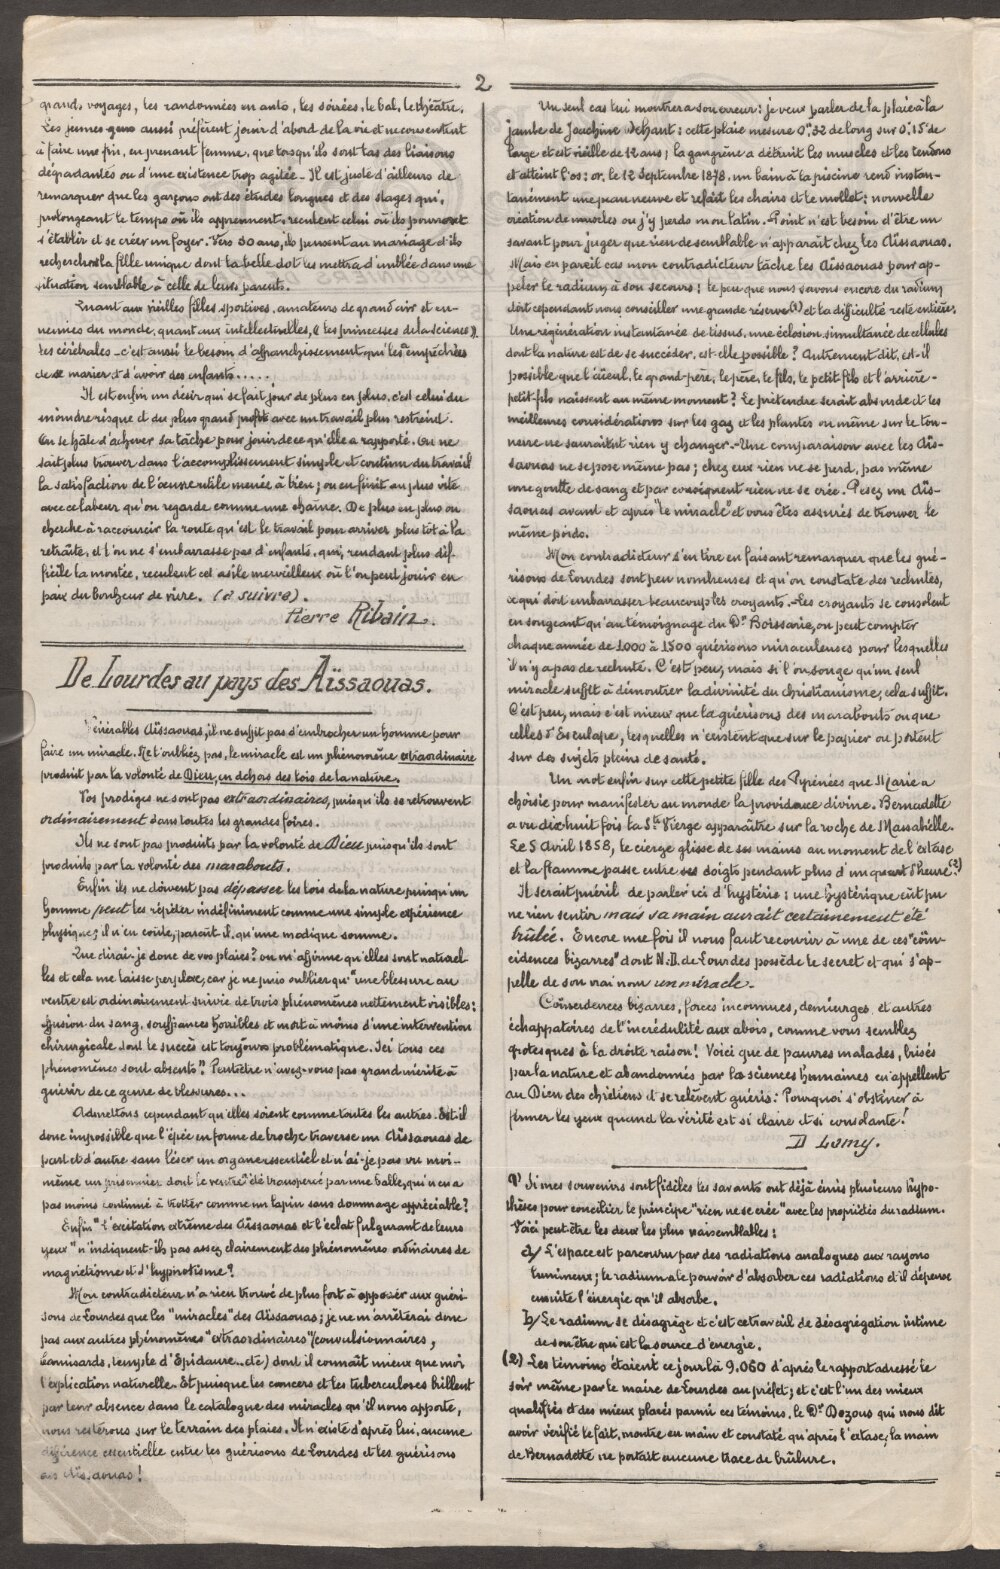 2
grand, voyages, les randonnées en auto, les soirées, le bal, le théâtre.
Les jeunes gens aussi préfèrent jouir d'abord de la vie et ne consentent
à faire une fin, en prenant femme, que lorsqu'ils sont las des liaisons
dégradantes ou d'une existence trop agitée - Il est juste d'ailleurs de
remarquer que les garçons ont des études longues et des stages qui,
prolongeant le temps où ils apprennent, reculent celui où ils pourront
s'établir et se créer un foyer. Vers 30 ans, ils pensent au mariage et ils
recherchent la fille unique dont la belle dot les mettra d'emblée dans une
situation semblable à celle de leurs parents.
Quant aux vieilles filles sportives, amateurs de grand air et en-
nemies du monde, quant aux intellectuelles, "les princesses de la science",
les cérébrales - c'est aussi le besoin d'affranchissement qui les a empêchées
de se marier et d'avoir des enfants.....
Il est enfin un désir qui se fait jour de plus en plus, c'est celui du
moindre risque et du plus grand profit avec un travail plus restreint.
On se hâte d'achever sa tâche pour jouir de ce qu'elle a rapporté. On ne
sait plus trouver dans l'accomplissement simple et continu du travail
la satisfaction de l'œuvre utile menée à bien ; on en finit au plus vite
avec ce labeur qu'on regarde comme une chaîne. De plus en plus on
cherche à raccourcir la route qu'est le travail pour arriver plus tôt à la
retraite, et l'on ne s'embarrasse pas d'enfants, qui, rendant plus dif-
ficile la montée, reculent cet asile merveilleux où l'on peut jouir en
paix du bonheur de vivre. (à suivre).
Pierre Ribain.
De Lourdes au pays des Aïssaouas.
Vénérables Aïssaouas, il ne suffit pas d'embrocher un homme pour
faire un miracle. Ne l'oubliez pas, le miracle est un phénomène extraordinaire
produit par la volonté de Dieu, en dehors des lois de la nature.
Vos prodiges ne sont pas extraordinaires, puisqu'ils se retrouvent
ordinairement dans toutes les grandes foires.
Ils ne sont pas produits par la volonté de Dieu puisqu'ils sont
produits par la volonté des marabouts.
Enfin ils ne doivent pas dépasser les lois de la nature puisqu'un
homme peut les répéter indéfiniment comme une simple expérience
physique ; il n'en coûte, paraît-il, qu'une modique somme.
Que dirais-je donc de vos plaies ? on m'affirme qu'elles sont naturel
les et cela me laisse perplexe, car je ne puis oublier qu'"une blessure au
ventre est ordinairement suivie de trois phénomènes nettement visibles :
effusion du sang, souffrances horribles et mort à moins d'une intervention
chirurgicale dont le succès est toujours problématique. Ici tous ces
phénomènes sont absents." Peut-être n'avez-vous pas grand mérite à
guérir de ce genre de blessures...
Admettons cependant qu'elles soient comme toutes les autres. Est-il
donc impossible que l'épée en forme de broche traverse un Aïssaouas de
part et d'autre sans léser un organe essentiel et n'ai-je pas vu moi-
même un prisonnier dont le ventre a été transpercé par une balle, qui n'en a
pas moins continué à trotter comme un lapin sans dommage appréciable ?
Enfin "l'excitation extrême des Aïssaouas et l'éclat fulgurant de leurs
yeux" n'indiquent-ils pas assez clairement des phénomènes ordinaires de
magnétisme et d'hypnotisme ?
Mon contradicteur n'a rien trouvé de plus fort à opposer aux guéri-
sons de Lourdes que les "miracles" des Aïssaouas ; je ne m'arrêterai donc
pas aux autres phénomènes "extraordinaires" (convulsionnaires,
Camisards, temple d'Epidaure... etc) dont il connaît mieux que moi
l'explication naturelle. Et puisque les cancers et les tuberculoses brillent
par leur absence dans le catalogue des miracles qu'il nous apporte,
nous resterons sur le terrain des plaies. Il n'existe d'après lui, aucune
différence essentielle entre les guérisons de Lourdes et les guérisons
des Aïssaouas !
Un seul cas lui montrera son erreur : je veux parler de la plaie à la
jambe de Joachine Dehant : cette plaie mesure 0m32 de long sur 0m15 de
large et est vieille de 12 ans ; la gangrène a détruit les muscles et les tendons
et atteint l'os : or, le 12 Septembre 1878, un bain à la piscine rend instan-
tanément une peau neuve et refait les chairs et le mollet : nouvelle
création de muscles ou j'y perds mon latin. Point n'est besoin d'être un
savant pour juger que rien de semblable n'apparaît chez les Aïssaouas.
Mais en pareil cas mon contradicteur tâche les Aïssaouas pour ap-
peler le radium à son secours ; le peu que nous savons encore du radium
doit cependant nous conseiller une grande réserve (1) et la difficulté reste entière.
Une régénération instantanée de tissus, une éclosion simultanée de cellules
dont la nature est de se succéder, est-elle possible ? Autrement dit, est-il
possible que l'aïeul, le grand-père, le père, le fils, le petit fils et l'arrière-
petit-fils naissent au même moment ? Le prétendre serait absurde et les
meilleures considérations sur les gaz et les plantes ou même sur le ton-
nerre ne sauraient rien y changer. - Une comparaison avec les Aïs-
saouas ne se pose même pas ; chez eux rien ne se perd, pas même
une goutte de sang et par conséquent rien ne se crée. Pesez un Aïs-
saouas avant et après le "miracle" et vous êtes assurés de trouver le
même poids.
Mon contradicteur s'en tire en faisant remarquer que les gué-
risons de Lourdes sont peu nombreuses et qu'on constate des rechutes,
ce qui doit embarrasser beaucoup les croyants. - Les croyants se consolent
en songeant qu'au témoignage du Dr Boissarie, on peut compter
chaque année de 1000 à 1500 guérisons miraculeuses pour lesquelles
il n'y a pas de rechute. C'est peu, mais si l'on songe qu'un seul
miracle suffit à démontrer la divinité du christianisme, cela suffit.
C'est peu, mais c'est mieux que la guérisons des marabouts ou que
celles d'Esculape, lesquelles n'existent que sur le papier ou portent
sur des sujets pleins de santé.
Un mot enfin sur cette petite fille des Pyrénées que Marie a
choisie pour manifester au monde la providence divine. Bernadette
a vu dix huit fois la Ste Vierge apparaître sur la roche de Massabielle.
Le 5 Avril 1858, le cierge glisse de ses mains au moment de l'extase
et la flamme passe entre ses doigts pendant plus d'un quart d'heure (2)
Il serait puéril de parler ici d'hystérie : une hystérique eût pu
ne rien sentir mais sa main aurait certainement été
brûlée. Encore une fois il nous faut recourir à une de ces "coïn-
cidences bizarres" dont N.D. de Lourdes possède le secret et qui s'ap-
pelle de son vrai nom un miracle.
Coïncidences bizarres, forces inconnues, démiurges et autres
échappatoires de l'incrédulité aux abois, comme vous semblez
grotesques à la droite raison ! Voici que de pauvres malades, brisés
par la nature et abandonnés par les sciences humaines en appellent
au Dieu des chrétiens et se relèvent guéris : Pourquoi s'obstiner à
fermer les yeux quand la vérité est si claire et si consolante !
D Lamy.
(1) Si mes souvenirs sont fidèles les savants ont déjà émis plusieurs hypo-
thèses pour concilier le principe "rien ne se crée" avec les propriétés du radium.
Voici peut-être les deux les plus vraisemblables :
a/ L'espace est parcouru par des radiations analogues aux rayons
lumineux ; le radium a le pouvoir d'absorber ces radiations et il dépense
ensuite l'énergie qu'il absorbe.
b/ Le radium se désagrège et c'est ce travail de désagrégation intime
de son être qui est la source d'énergie.
(2) Les témoins étaient ce jour là 9.060 d'après le rapport adressé le
soir même par le maire de Lourdes au préfet ; et c'est l'un des mieux
qualifiés et des mieux placés parmi ces témoins, le Dr Dozous qui nous dit
avoir vérifié le fait, montre en main et constaté qu'après l'extase, la main
de Bernadette ne portait aucune trace de brûlure.